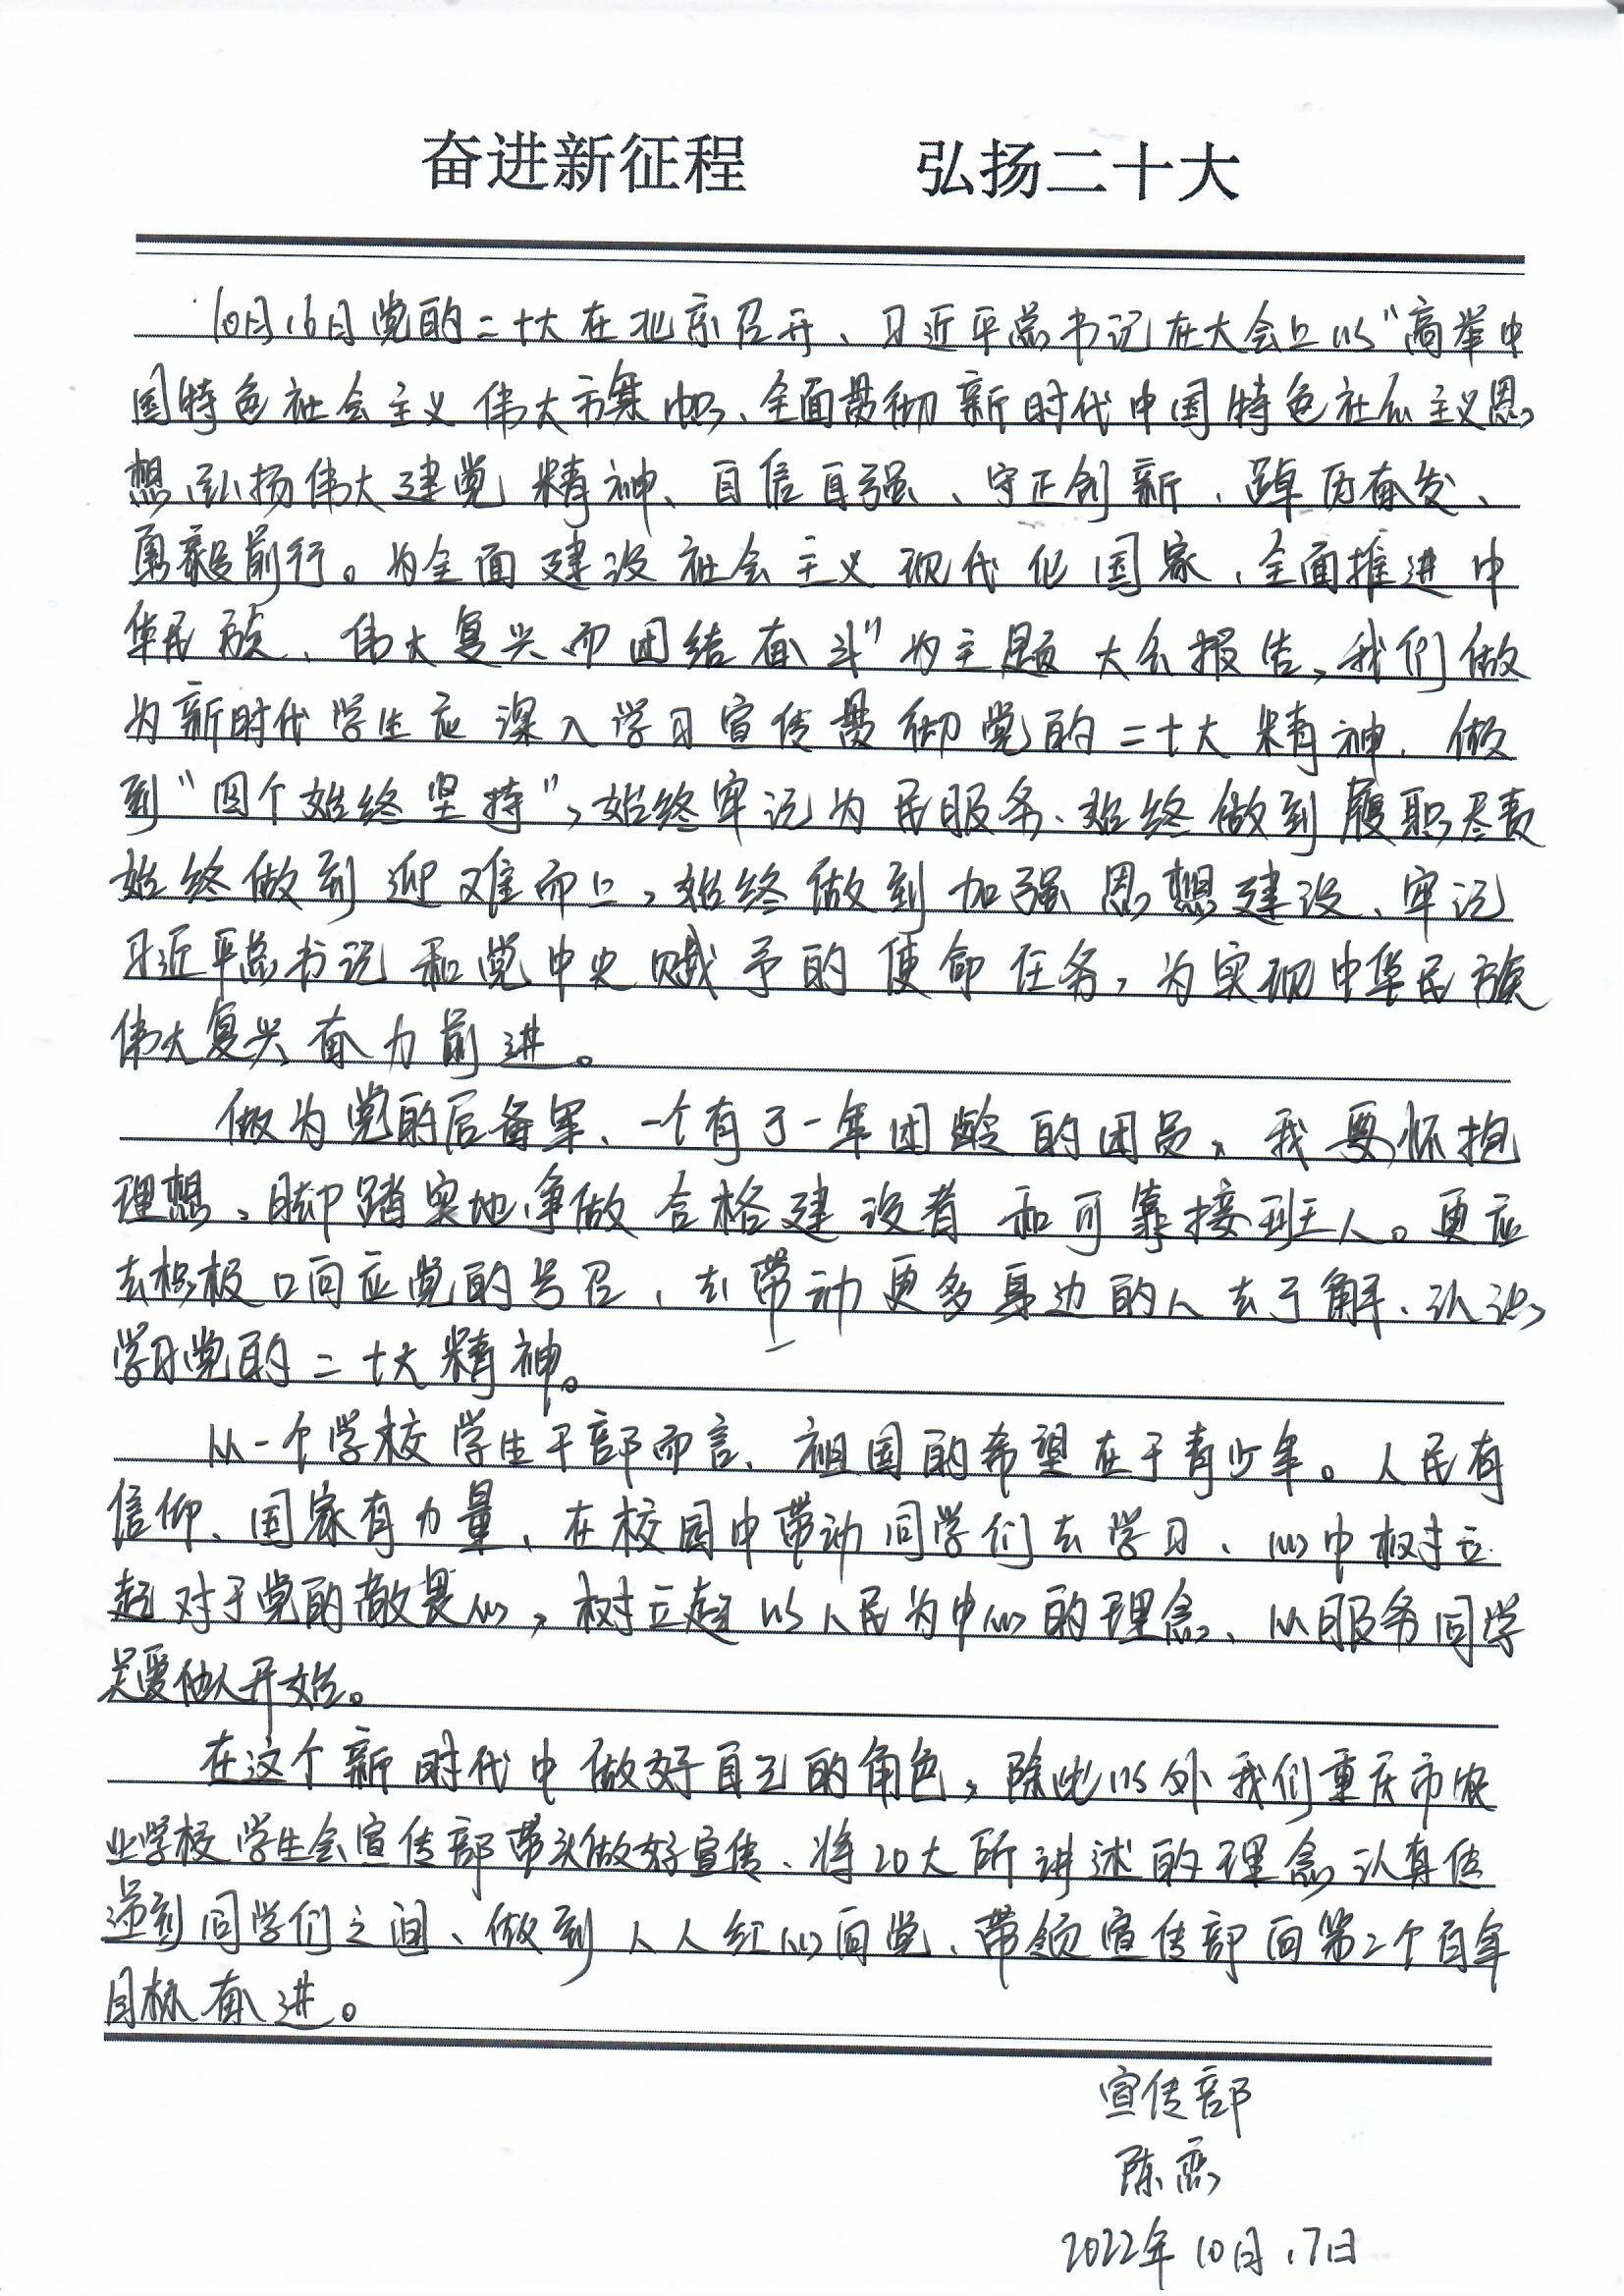 奋进新征程 弘扬二十大
10月16日党的二十大在北京召开、习近平总书记在大会上以“高举中
国特色社会主义伟大旗帜、全面贯彻新时代中国特色社会主义思
想、弘扬伟大建党精神、自信自强、守正创新、踔厉奋发、
勇毅前行。为全面建设社会主义现代化国家、全面推进中
华民族、伟大复兴而团结奋斗”为主题大会报告，我们做
为新时代学生应深入学习宣传贯彻党的二十大精神．做
到“四个始终坚持”，始终牢记为民服务、始终做到履职尽责
始终做到迎难而上，始终做到加强思想建设、牢记
习近平总书记和党中央赋予的使命任务，为实现中华民族
伟大复兴奋力前进。
做为党的后备军、一个有了一年团龄的团员，我要怀抱
理想，脚踏实地争做合格建设者和可靠接班人。更应
去积极响应党的号召、去带动更多身边的人去了解、认识
学习党的二十大精神。
从一个学校学生干部而言、祖国的希望在于青少年。人民有
信仰、国家有力量、在校园中带动同学们去学习、心中树立
起对于党的敬畏心，树立起以人民为中心的理念、从服务同学
关爱他人开始。
在这个新时代中做好自己的角色，除此以外我们重庆市农
业学校学生会宣传部带头做好宣传、将20大所讲述的理念认真传
递到同学们之间、做到人人红心向党、带领宣传部向第二个百年
目标奋进。
宣传部
陈恋
2022年10月17日